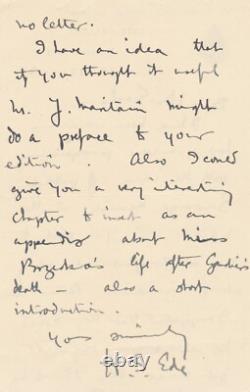 no letter.
I have an idea that
if you thought it useful
Mr. J. Maritain might
do a preface to your
edition. Also I could
give you a very interesting
chapter to insert as an
appendix about Miss
Brzeska's life after Gaudier's
death — also a short
introduction.
Yours sincerely
H. S. Ede